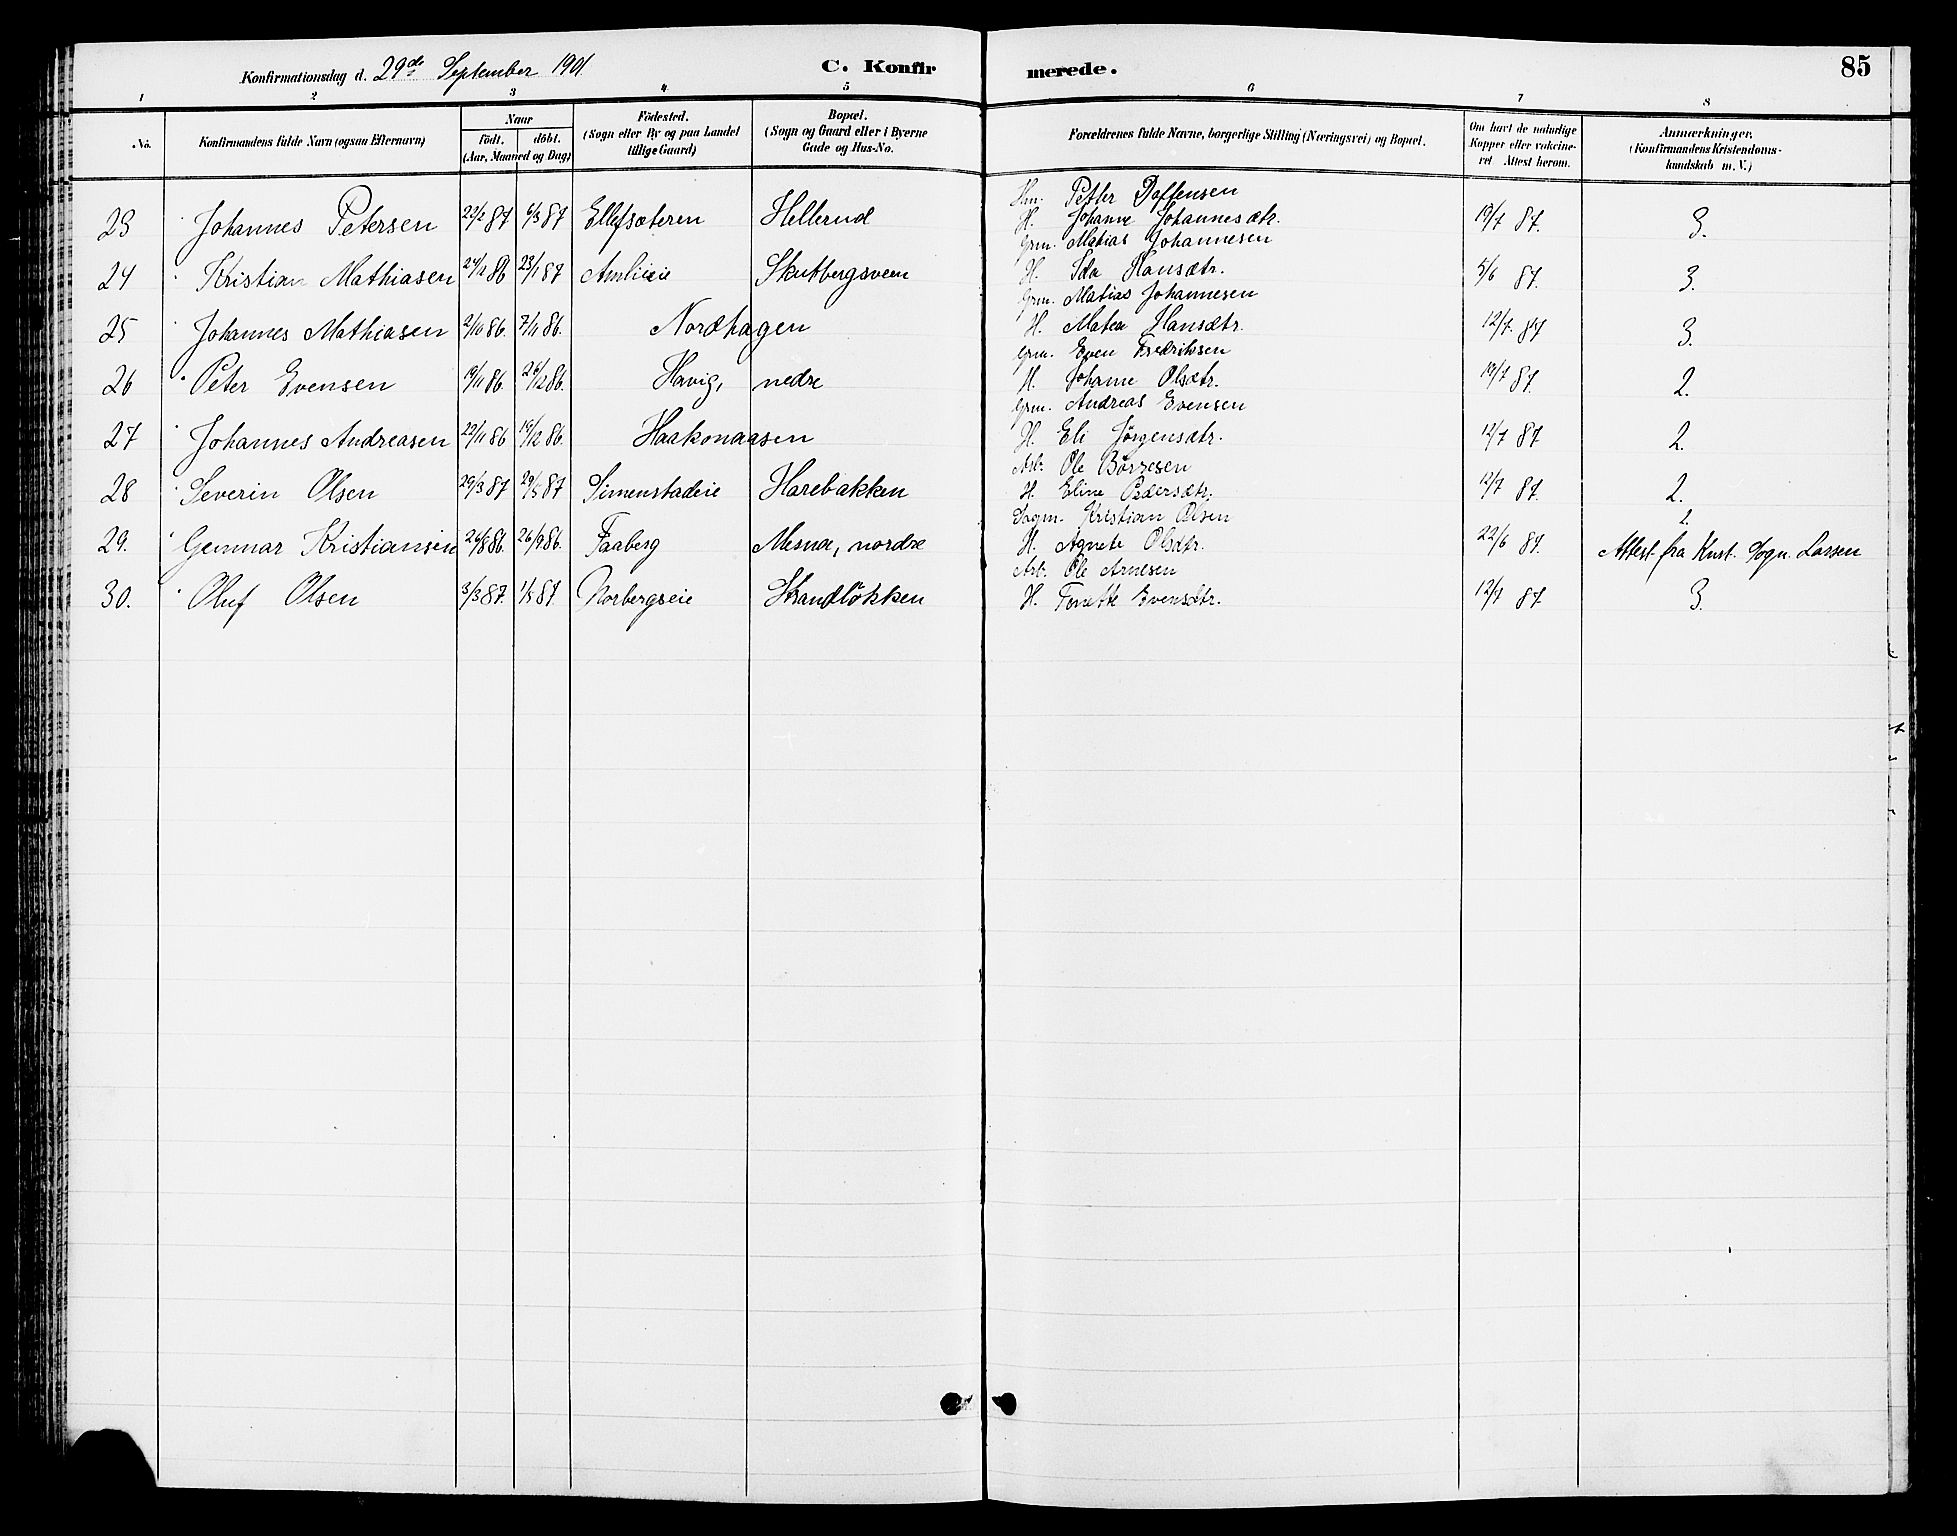 Konfirmationsdag d. 29de September 1901 C. Konfirmerede. 85
1 2 3 4 5 6 7 8
No. Konfirmandens fulde Navn (ogsaa Efternavn) Naar födt. döbt. (Aar, Maaned og Dag) Födested. (Sogn eller By og paa Landet tillige Gaard) Bopæl. (Sogn og Gaard eller i Byerne Gade og Hus-No. Forældrenes fulde Navne, borgerlige Stilling (Næringsvei) og Bopæl. Om havt de naturlige Kopper eller vakcineret Attest herom. Anmærkninger. (Konfirmandens Kristendomskundskab m. V.)
23 Johannes Petersen 22/2 87 6/3 87 Ellefsæteren Hellerud Hm. Petter Doffensen
H. Johanne Johannesdtr. 19/7 87. 3.
24 Kristian Mathiasen 24/12 86 23/1 87 Amlieie Skutbergsveen Grm. Matias Johannesen
H. Ida Hansdtr. 5/6 87. 3.
25 Johannes Mathiasen 2/10 86. 7/11 86. Nordhagen Grm. Matias Johannesen
H. Matea Hansdtr. 12/7 87 3.
26 Peter Evensen 19/11 86. 26/12 86. Havig, nedre Grm. Even Fredriksen
H. Johanne Olsdtr. 19/7 87. 2.
27 Johannes Andreasen 22/11 86 19/12 86. Haakonaasen Grm. Andreas Evensen
H. Eli Jörgensdtr. 12/7 87 2.
28 Severin Olsen 29/3 87 29/5 87 Simenstadeie Harebakken Arb. Ole Börresen
H. Eline Pedersdtr. 12/7 87. 2.
29. Gunnar Kristiansen 26/8 86. 26/9 86. Faaberg Mesna, nordre Sagm. Kristian Olsen
H. Agnete Olsdtr. 22/6 87. 2. Attest fra Kust. Sogn. Lassen
30. Oluf Olsen 3/3 87. 1/5 87. Norbergseie Strandlökken Arb. Ole Arnesen
H. Tonette Evensdtr. 12/7 87. 3.